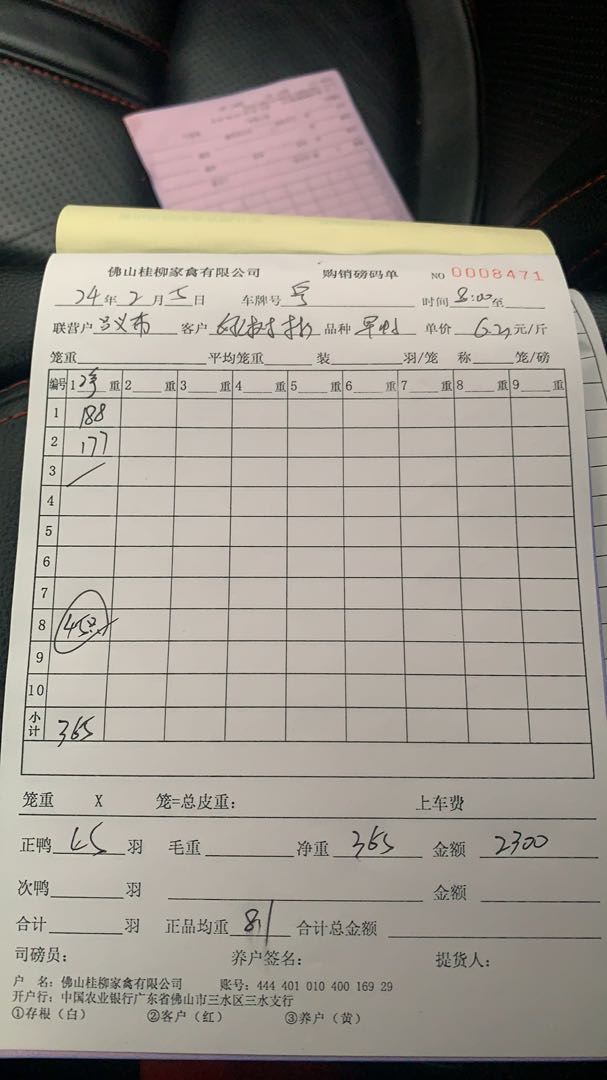 佛山桂柳家禽有限公司 购销磅码单 NO 0008471
24年2月5日 车牌号 时间8:00至
联营户 吕义布 客户 品种 单价 6.3元/斤
笼重 平均笼重 装 羽/笼 称 笼/磅
编号 1 净 重 2 重 3 重 4 重 5 重 6 重 7 重 8 重 9 重
1 188
2 177
3 /
4
5
6
7
8 45只
9
10
小计 365
笼重 X 笼=总皮重: 上车费
正鸭 45 羽 毛重 净重 365 金额 2300
次鸭 羽 金额
合计 羽 正品均重 8.1 合计总金额
司磅员: 养户签名: 提货人:
户 名: 佛山桂柳家禽有限公司 账号: 444 401 010 400 169 29
开户行: 中国农业银行广东省佛山市三水区三水支行
①存根(白) ②客户(红) ③养户(黄)